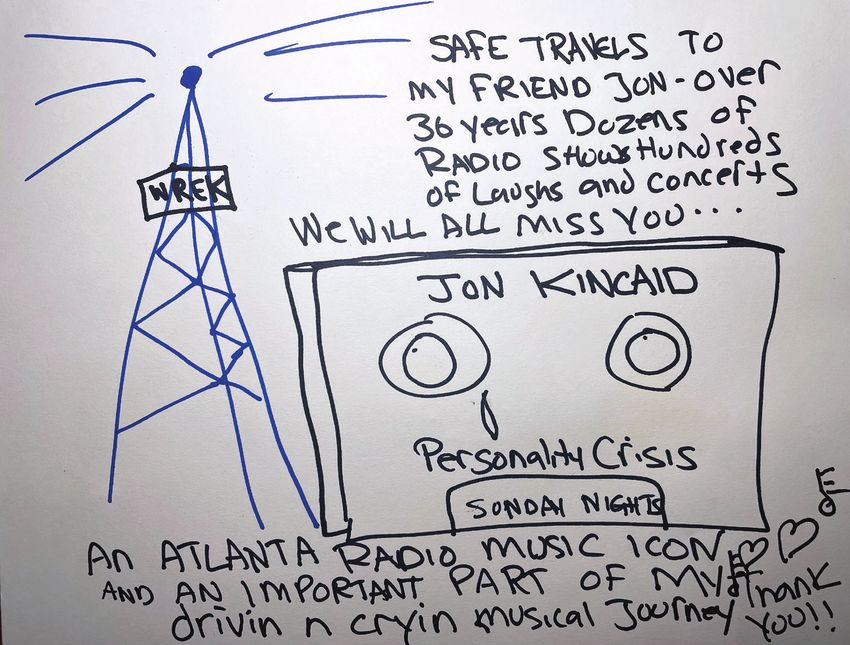 SAFE TRAVELS TO
MY FRIEND JON - OVER
36 years Dozens of
RADIO SHOWS Hundreds
of Laughs and concerts
We WILL ALL MISS YOU...
WREK
JON KINCAID
Personality Crisis
SUNDAY NIGHTS
An ATLANTA RADIO MUSIC ICON
AND AN IMPORTANT PART OF MY
drivin n cryin musical Journey
Thank
YOU!!